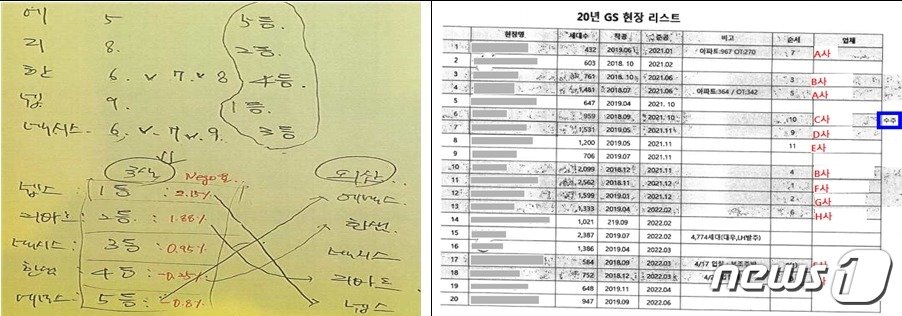 에 5 5등
리 8. 2등
한 6. v 7. v 8 4등
넵 9. 1등
네시스. 6, v 7 v 9. 3등
넵스. 1등 : 2.15%
리바트 2등 : 1.88%
네시스 3등 : 0.95%
한샘 4등 : -0.25%
5등 : -0.8%
한샘
네시스
리바트
넵스
20년 GS 현장 리스트
현장명 세대수 착공 준공 비고 순서 업체
1 432 2019.06 2021.01 아파트:967 OT:270 7 A사
2 603 2018. 10 2021.02
3 761 2018. 10 2021.06 3 B사
4 1,481 2018.07 2021.06 아파트:364 / OT:342 5 A사
5 647 2019.04 2021. 10
6 959 2018.09 2021. 10 10 C사 수주
7 1,531 2019.05 2021.11 9 D사
8 1,200 2019.05 2021.11 11 E사
9 706 2019.07 2021.11
10 2,099 2018.12 2021.11 4 B사
11 2,562 2018.11 2021.12 1 F사
12 1,599 2019.01 2021.12 2 G사
13 1,333 2019.04 2022.02 6 H사
14 1,021 219.09 2022.02
15 2,387 2019.07 2022.02 4,774세대(대우,LH발주)
16 1,386 2019.04 2022.03
17 584 2018.09 2022.03
18 752 2018.12 2022.03
19 648 2019.11 2022.04
20 947 2019.09 2022.06
news1